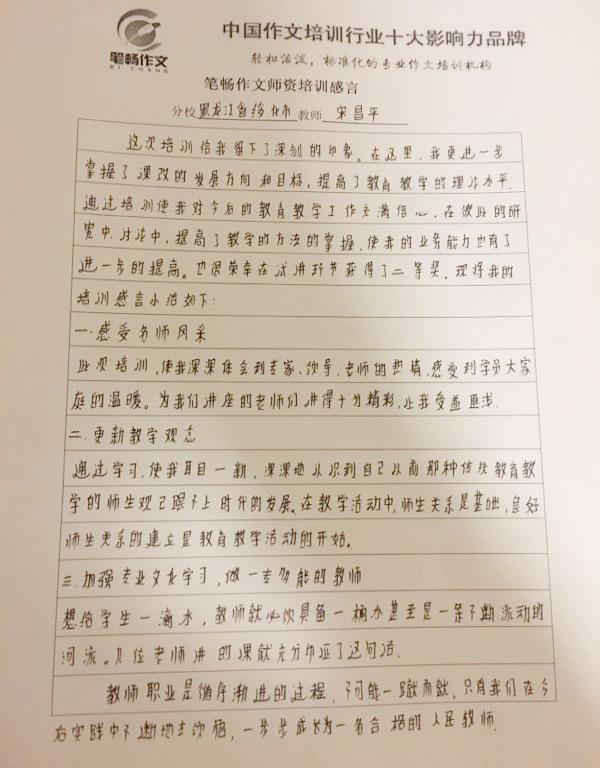 笔畅作文
BI CHANG
中国作文培训行业十大影响力品牌
轻松活泼，标准化的专业作文培训机构
笔畅作文师资培训感言
分校 黑龙江省绥化市 教师 宋昌平
这次培训给我留下了深刻的印象。在这里，我更进一步
掌握了课改的发展方向和目标，提高了教育教学的理论水平.
通过培训使我对今后的教育教学工作充满信心，在做好的研
究中.讨论中，提高了教学的方法的掌握，使我的业务能力也有了
进一步的提高。也很荣幸在试讲环节获得了二等奖，现将我的
培训感言小结如下：
一.感受名师风采
此次培训，使我深深体会到专家、领导、老师的热情，感受到学员大家
庭的温暖。为我们讲座的老师们讲得十分精彩，让我受益匪浅.
二.更新教学观念
通过学习，使我耳目一新，深深地认识到自己以前那种传统教育教
学的师生观已跟不上时代的发展。在教学活动中，师生关系是基础，良好
师生关系的建立是教育教学活动的开始。
三.加强专业文化学习，做一专多能的教师
想给学生一滴水，教师就必须具备一桶水甚至是一条不断流动的
河流。几位老师讲的课就充分印证了这句话.
教师职业是循序渐进的过程，不可能一蹴而就，只有我们在今
后实践中不断地去领悟，一步步成长为一名合格的人民教师.